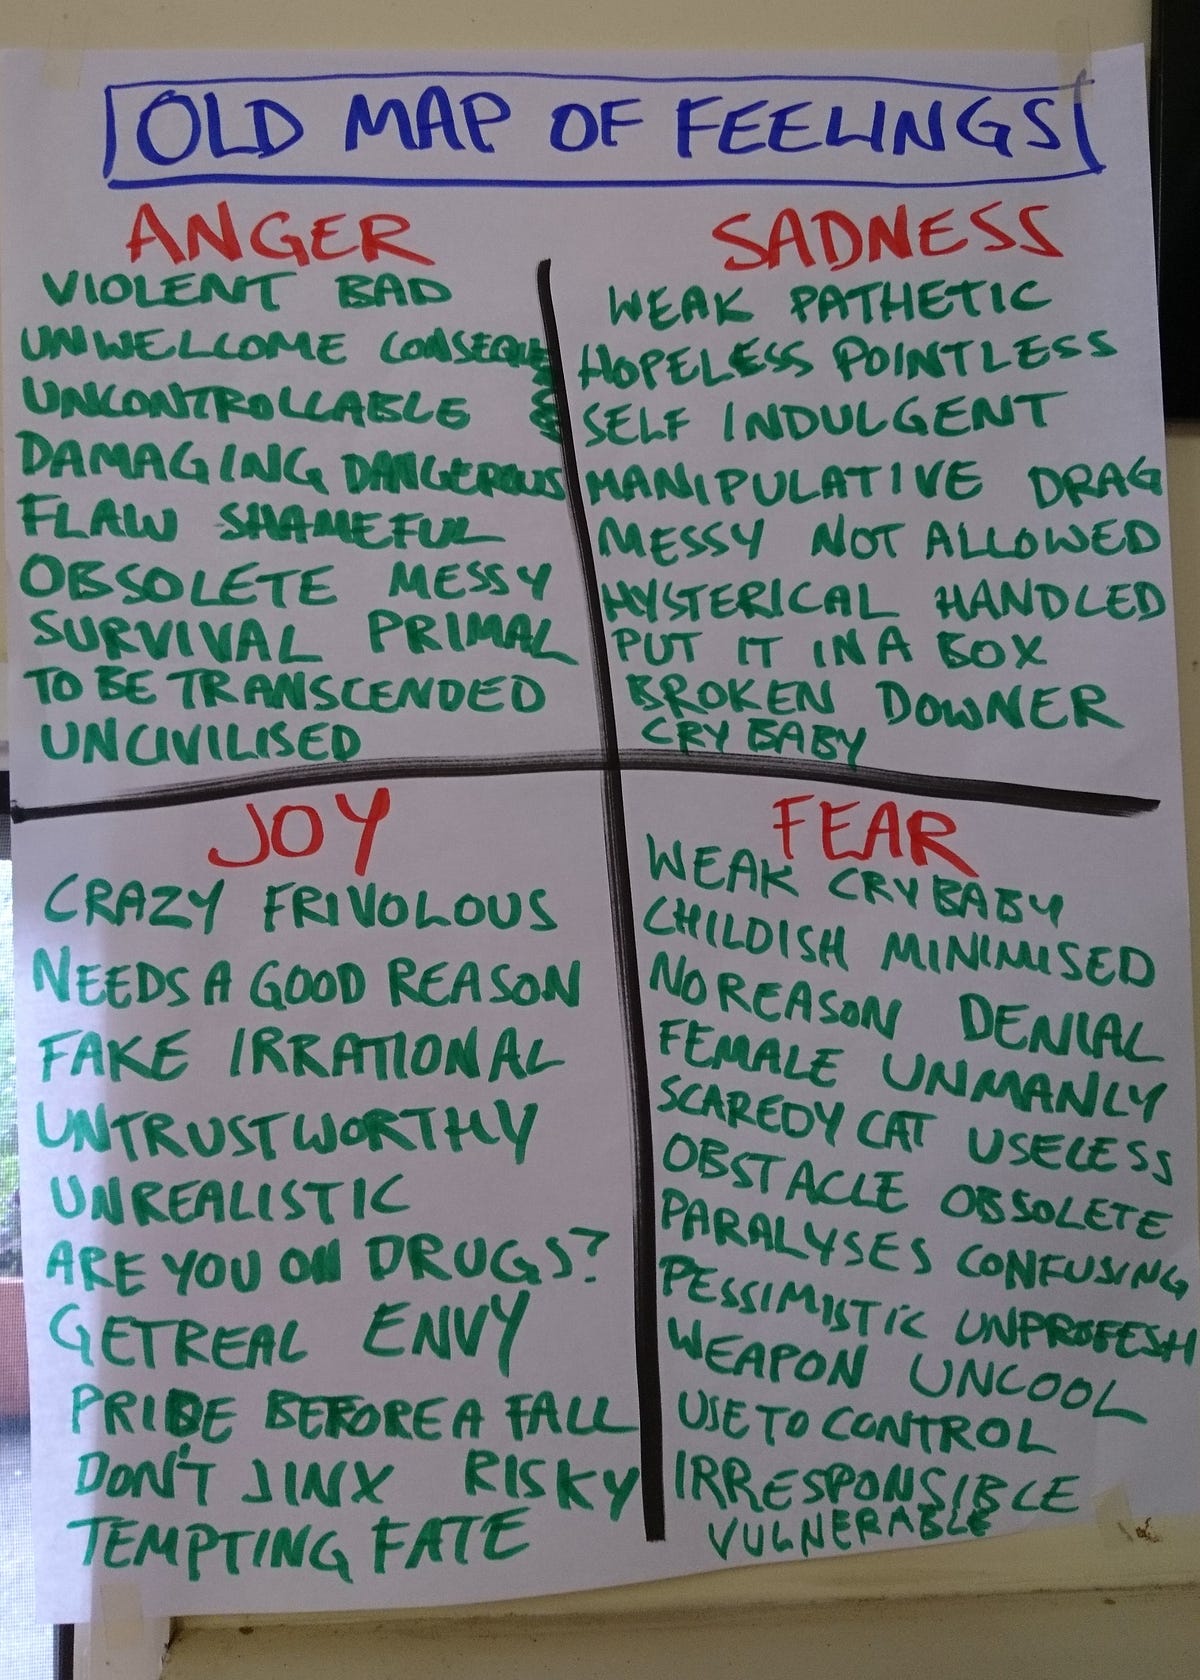 OLD MAP OF FEELINGS
ANGER
VIOLENT BAD
UNWELCOME CONSEQUENCES
UNCONTROLLABLE
DAMAGING DANGEROUS
FLAW SHAMEFUL
OBSOLETE MESSY
SURVIVAL PRIMAL
TO BE TRANSCENDED
UNCIVILISED
SADNESS
WEAK PATHETIC
HOPELESS POINTLESS
SELF INDULGENT
MANIPULATIVE DRAG
MESSY NOT ALLOWED
HYSTERICAL HANDLED
PUT IT IN A BOX
BROKEN DOWNER
CRY BABY
JOY
CRAZY FRIVOLOUS
NEEDS A GOOD REASON
FAKE IRRATIONAL
UNTRUSTWORTHY
UNREALISTIC
ARE YOU ON DRUGS?
GET REAL ENVY
PRIDE BEFORE A FALL
DON'T JINX RISKY
TEMPTING FATE
FEAR
WEAK CRY BABY
CHILDISH MINIMISED
NO REASON DENIAL
FEMALE UNMANLY
SCAREDY CAT USELESS
OBSTACLE OBSOLETE
PARALYSES CONFUSING
PESSIMISTIC UNPROFESH
WEAPON UNCOOL
USE TO CONTROL
IRRESPONSIBLE
VULNERABLE